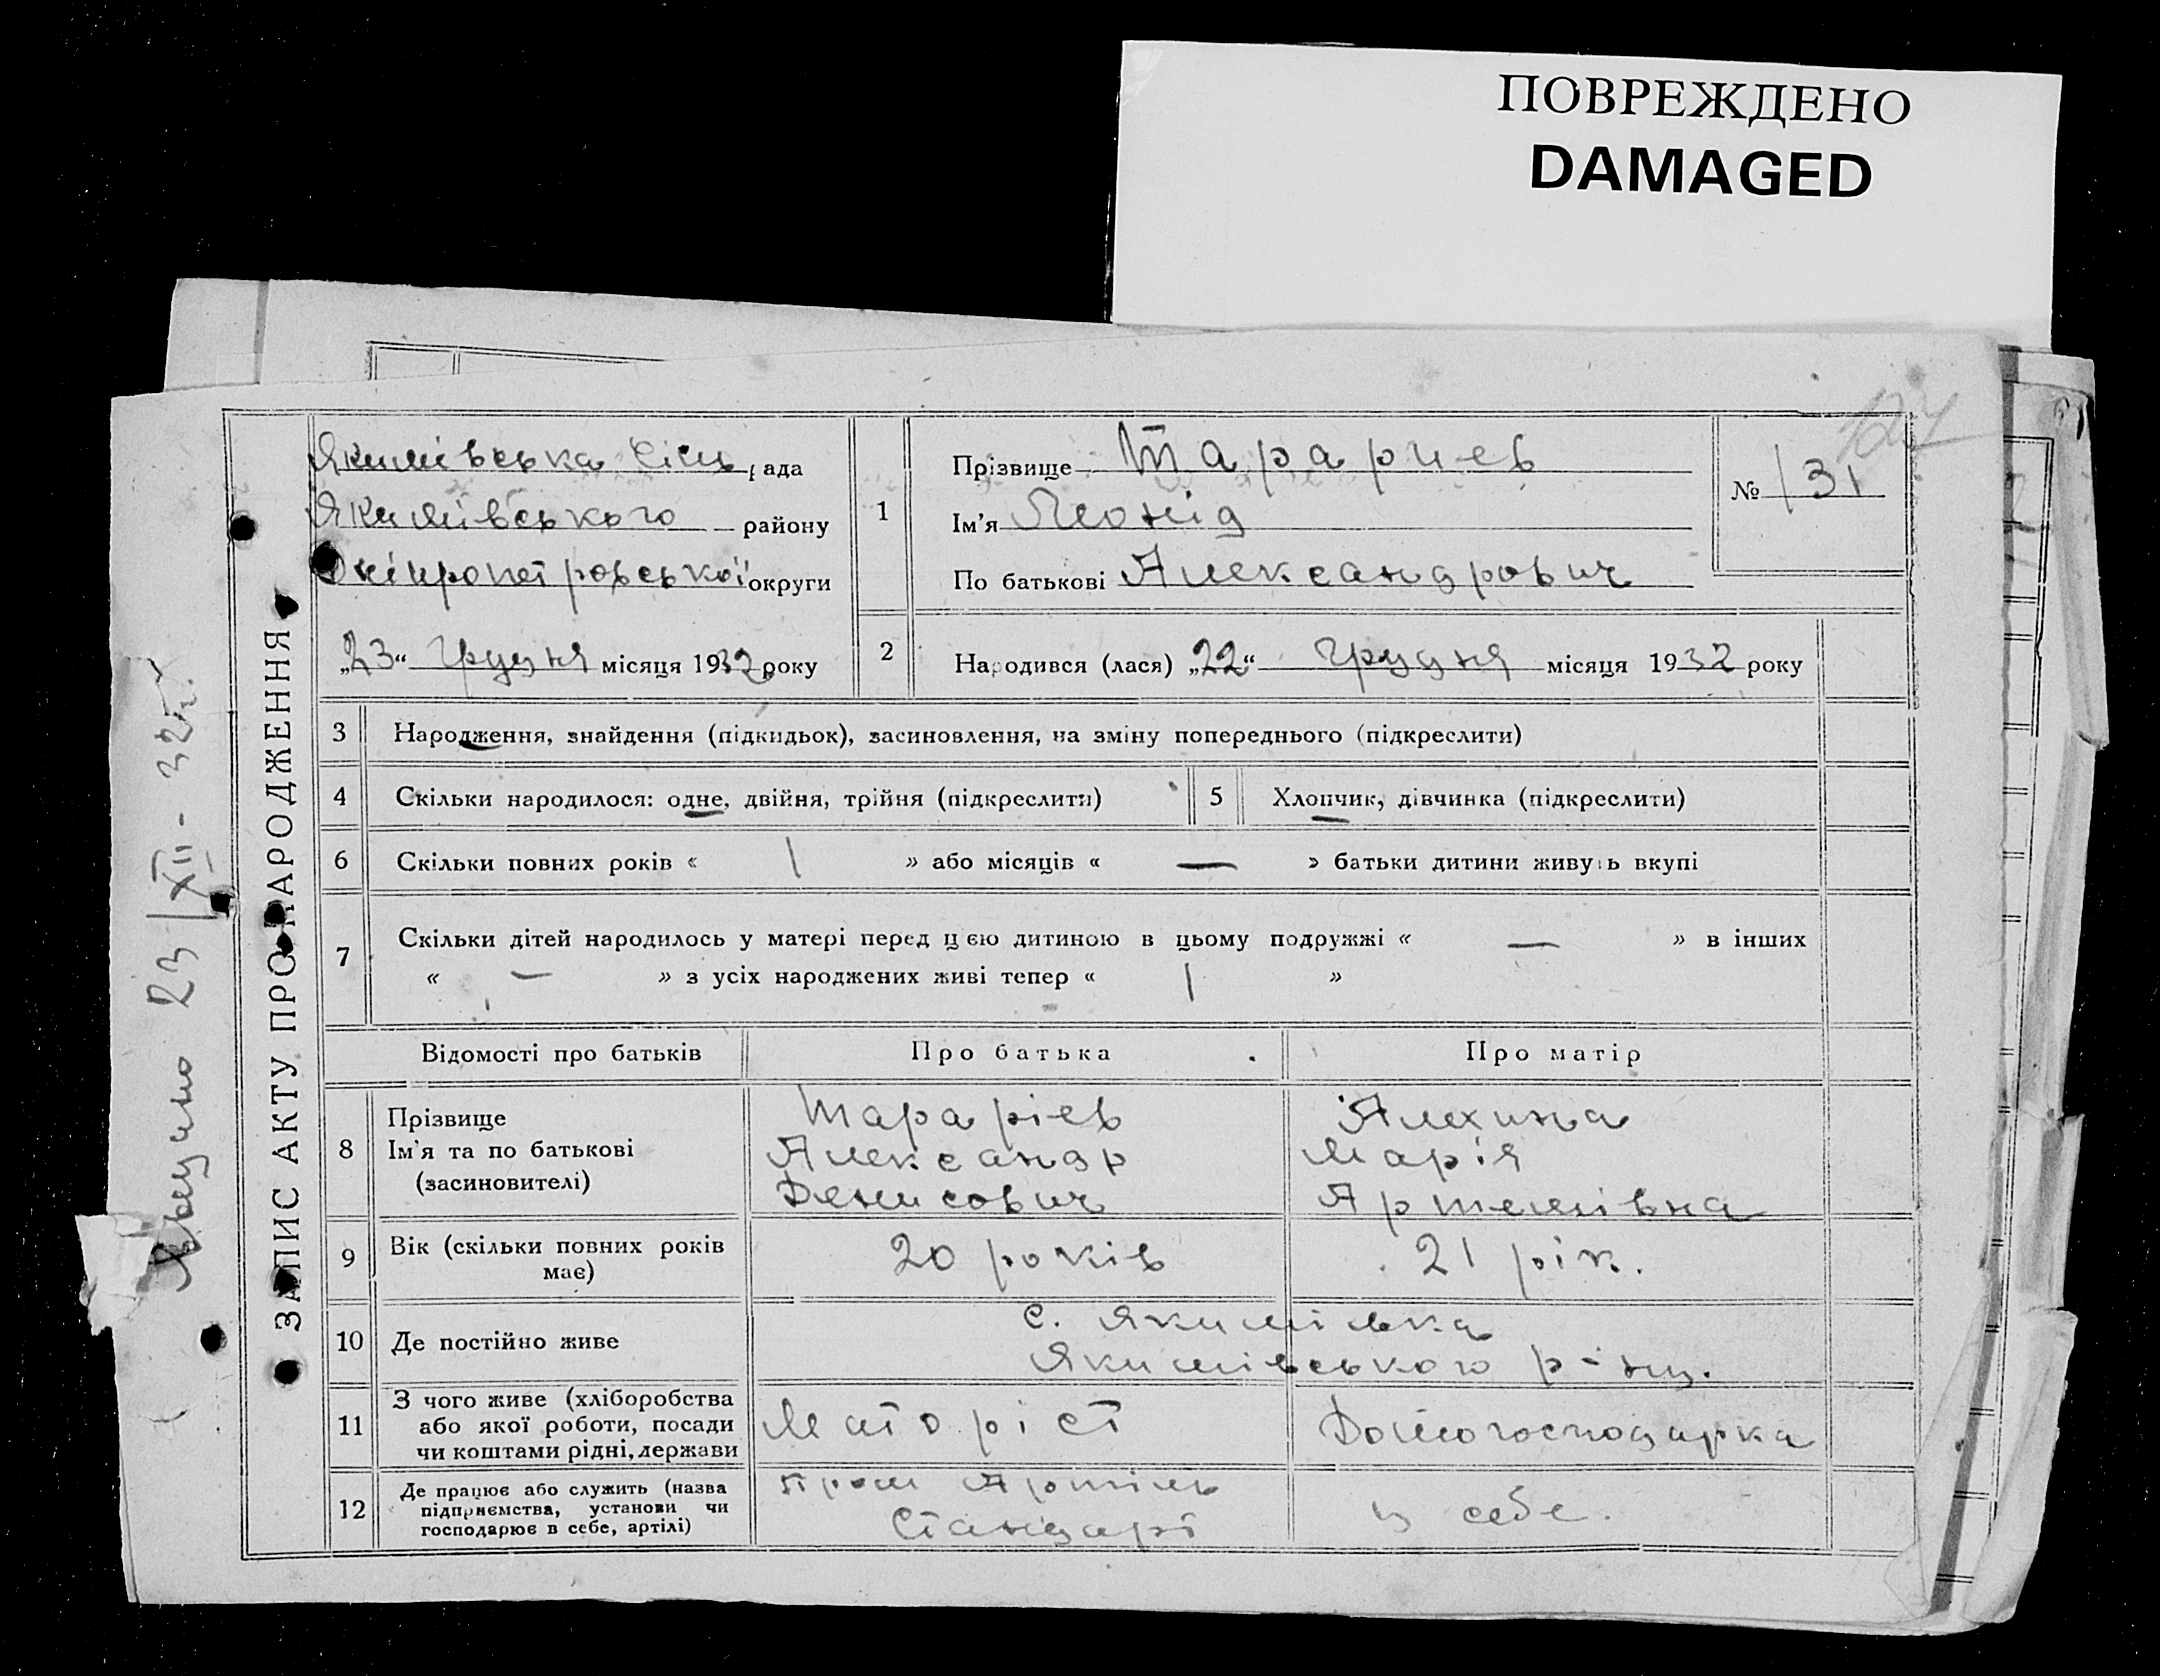 ПОВРЕЖДЕНО
DAMAGED
Якимівська Сіль рада
Якимівського району
Дніпропетровської округи
„23“ грудня місяця 1932 року
1
Прізвище Тарариев
Ім’я Леонід
По батькові Александрович
№ 131
2
Народився (лася) „22“ грудня місяця 1932 року
3 Народження, знайдення (підкидьок), засиновлення, на зміну попереднього (підкреслити)
4 Скільки народилося: одне, двійня, трійня (підкреслити)
5 Хлопчик, дівчинка (підкреслити)
6 Скільки повних років « 1 » або місяців « — » батьки дитини живуть вкупі
7 Скільки дітей народилось у матері перед цією дитиною в цьому подружжі « — » в інших
« — » з усіх народжених живі тепер « 1 »
Відомості про батьків
Про батька
Про матір
8
Прізвище
Ім’я та по батькові
(засиновителі)
Тараріев
Александр
Денисович
Алехина
Марія
Артемівна
9
Вік (скільки повних років
має)
20 років
21 рік.
10 Де постійно живе
с. Якимівка
Якимівського р-ну.
11
З чого живе (хліборобства
або якої роботи, посади
чи коштами рідні, держави
Маторіст
Домогосподарка
12
Де працює або служить (назва
підприємства, установи чи
господарює в себе, артілі)
Пром Артіль
Стандарт
у себе.
ЗАПИС АКТУ ПРО НАРОДЖЕННЯ
23/XII-32г.